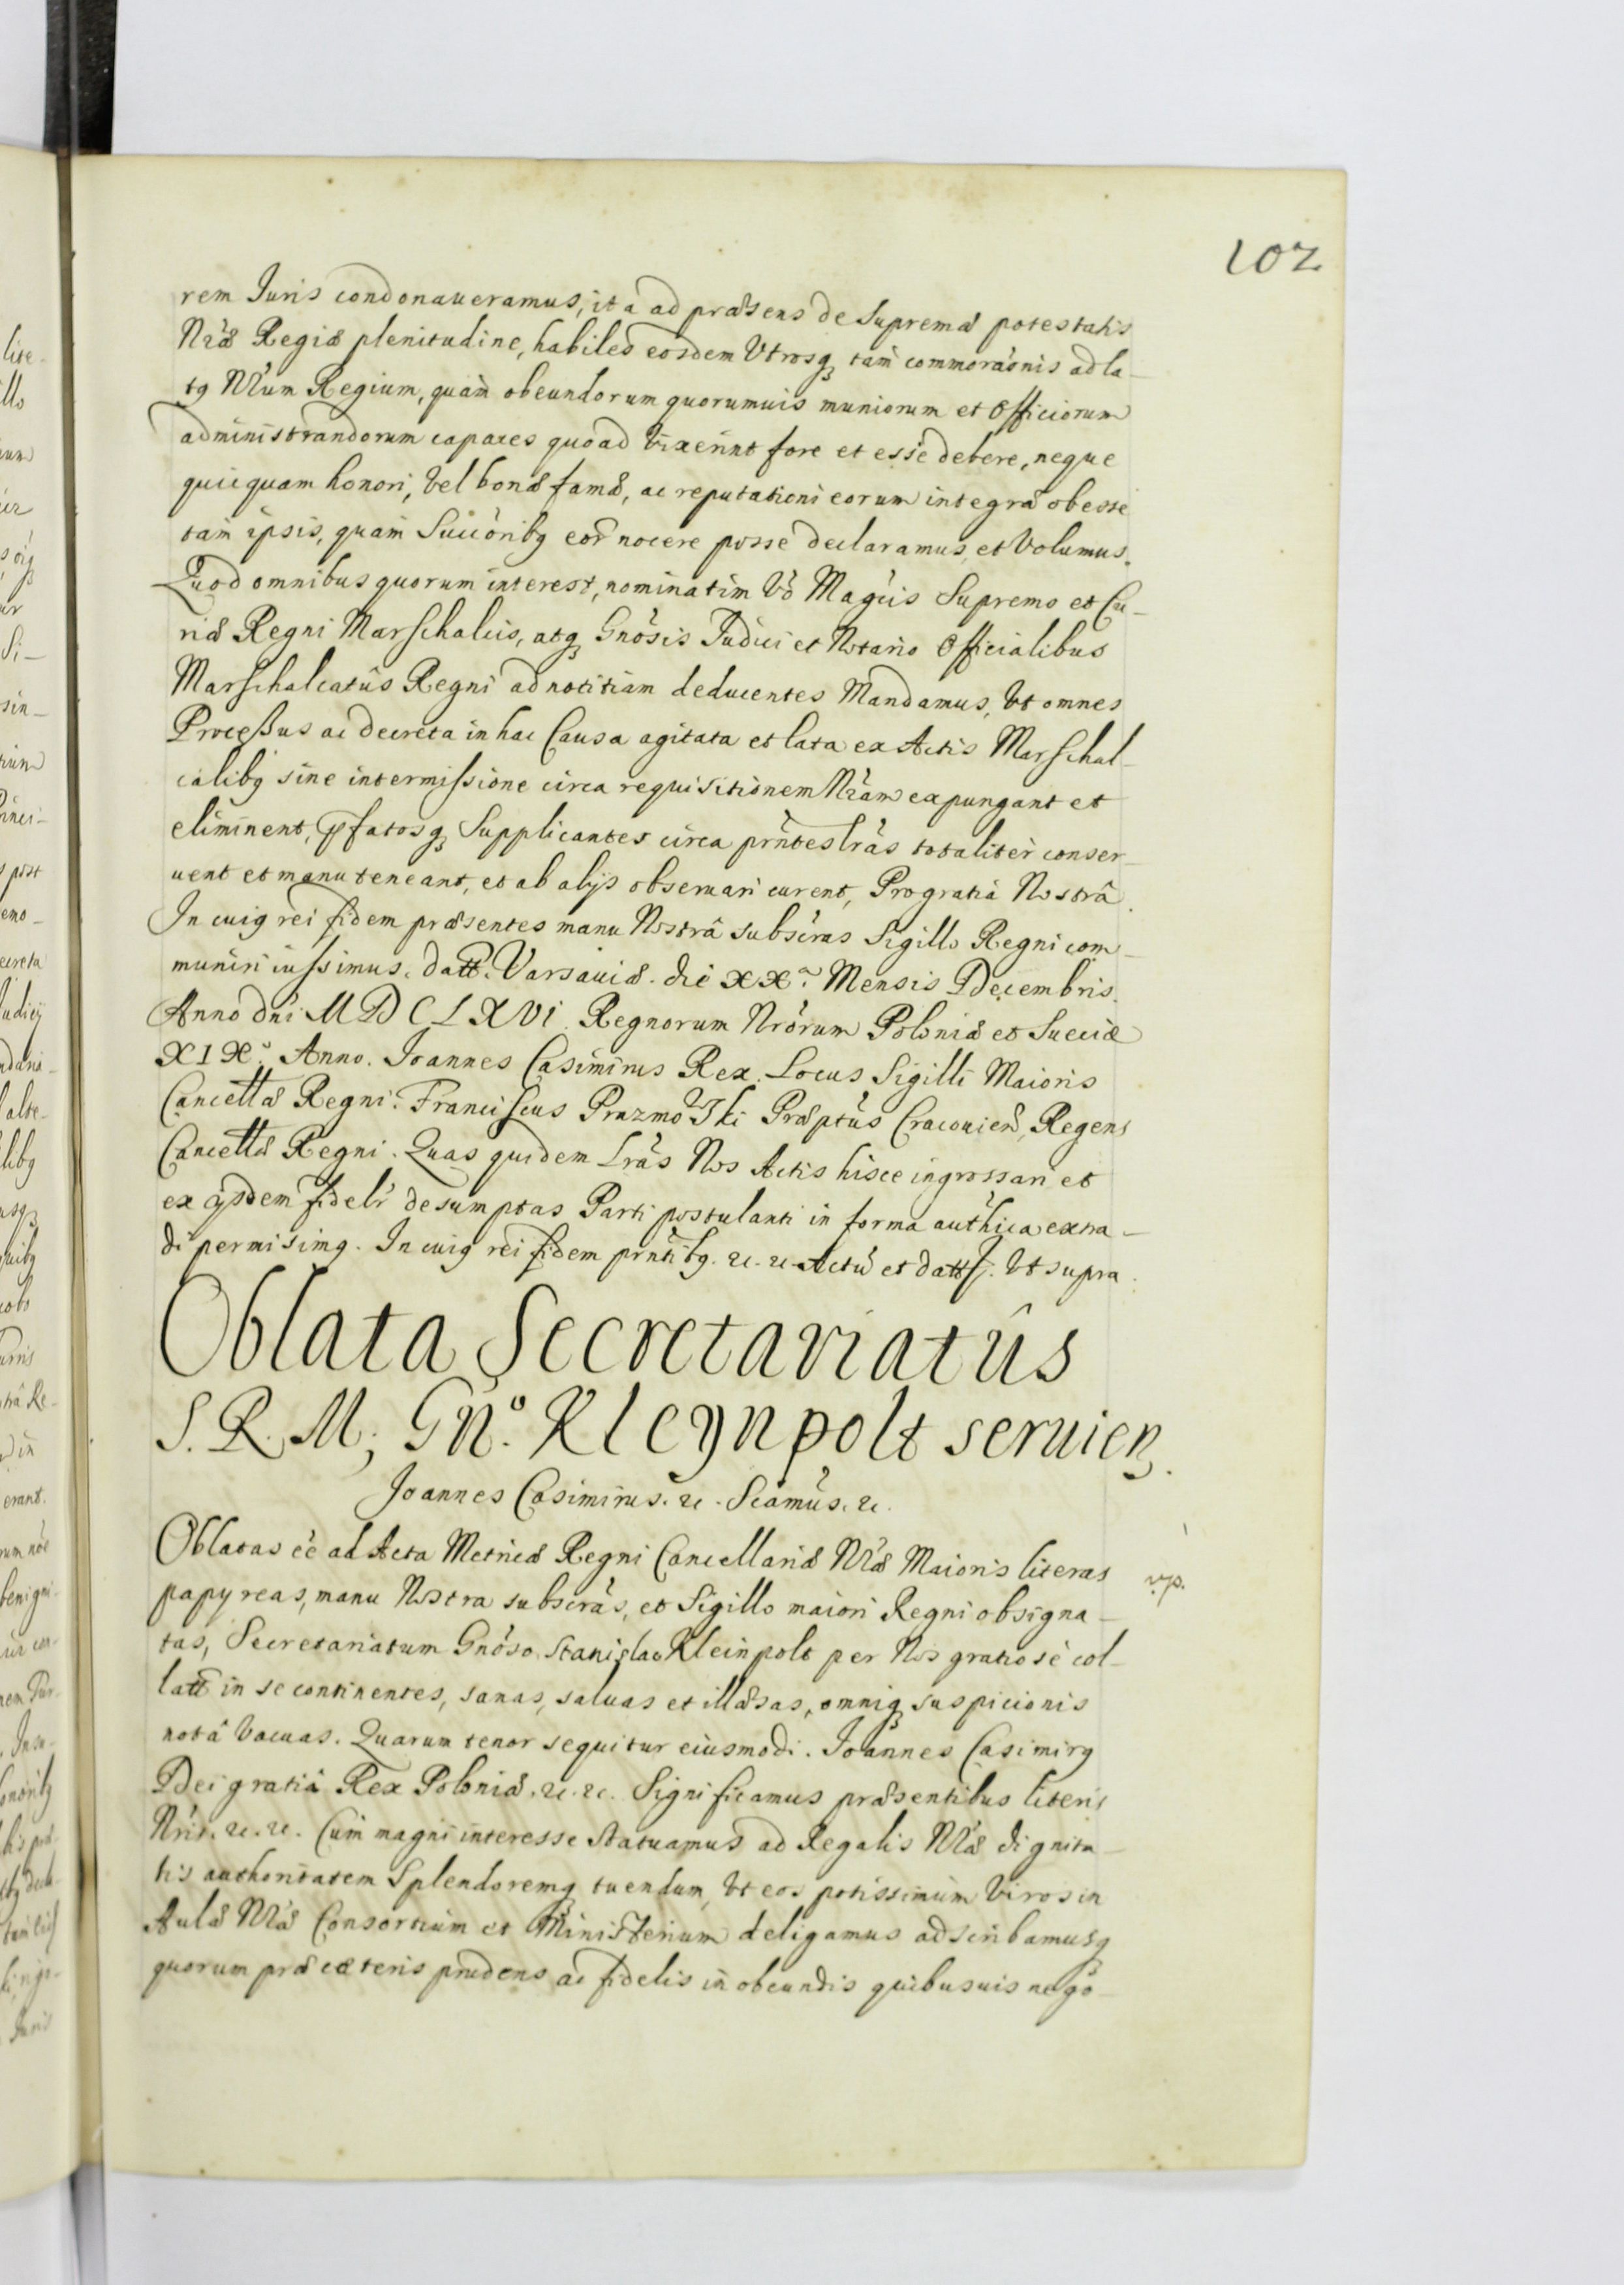 102
rem Juris condonaueramus, ita ad præsens de Supremæ potestatis
Nræ Regiæ plenitudine, habiles eosdem Vtrosq, tam commoraonis ad la-
tq Nrum Regium, quam obeundorum quorumuis muniorum et Officiorum
administrandorum capaces quoad Vixerint fore et esse debere, neque
quicquam honori, Vel bonæ famæ, ac reputationi eorum integræ obesse
tam ipsis, quam Succoribq eor nocere posse declaramus et Volumus.
Quod omnibus quorum interest, nominatim Vo Magcis Supremo et Cu-
riæ Regni Marschalcis, atq Gnosis Judici et Notario Officialibus
Marschalcatûs Regni ad notitiam deducentes Mandamus, Vt omnes
Proceßus ac decreta in hac Causa agitata et lata ex Actis Marschal-
calibq sine intermissione circa requisitionem Nram expungant et
eliminent, pfatosq Supplicantes circa pntes lras totaliter conser-
uent et manu teneant, et ab alijs obseruari curent, Pro gratia Nostrâ.
In cuiq rei fidem præsentes manu Nostrâ subscras Sigillo Regni com-
muniri iussimus. Datt. Varsauiæ. die XXa. Mensis Decembris.
Anno dni MDCLXVI. Regnorum Nrorum Poloniæ et Sueciæ
XIXo. Anno. Joannes Casimirus Rex. Locus Sigilli Maioris
Cancellæ Regni. Franciscus Prazmowski Præptus Cracouien, Regens
Cancellæ Regni. Quas quidem Lras Nos Actis hisce ingrossari et
ex ijsdem fidelr desumptas Parti postulanti in forma authica extra-
di permisimq. In cuiq rei fidem pntibq. &c. &c. Actu et datt. Vt supra.
Oblata Secretariatûs
S. R. M; Gn.o Kleynpolt seruien.
Joannes Casimirus. &c. Scamus. &c.
Oblatas ee ad Acta Metricæ Regni Cancellariæ Nræ Maioris literas
papyreas, manu Nostra subscras, et Sigillo maiori Regni obsigna-
tas, Secretariatum Gnoso Stanislao Kleinpolt per Nos gratiose col-
latt in se continentes, sanas, saluas et illæsas, omniq suspicionis
notâ Vacuas. Quarum tenor sequitur eiusmodi. Joannes Casimirq
Dei gratiâ Rex Poloniæ. &c. &c. Significamus præsentibus literis
Nris. &c. &c. Cum magni interesse statuamus ad Regalis Nræ dignita-
tis authoritatem Splendoremq tuendum, Vt eos potissimum Viros in
Aulæ Nræ Consortium et Ministerium deligamus adscribamusq
quorum præ cæteris prudens ac fidelis in obeundis quibusuis nego-